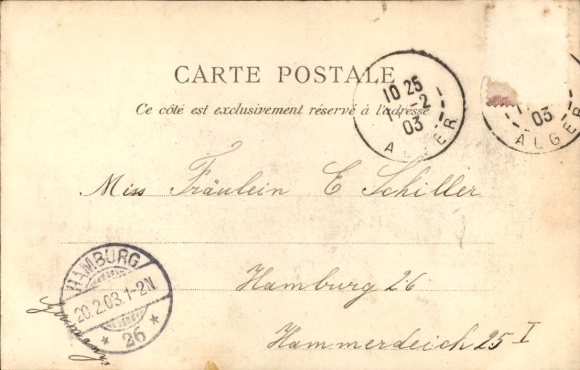 CARTE POSTALE
Ce côté est exclusivement réservé à l'adresse
10 25
-2
03
ALGER
03
ALGER
Miss Fräulein E Schiller
Hamburg 26
Hammerdeich 25 I
Germany.
HAMBURG
20.2.03.1-2N.
* 26 *